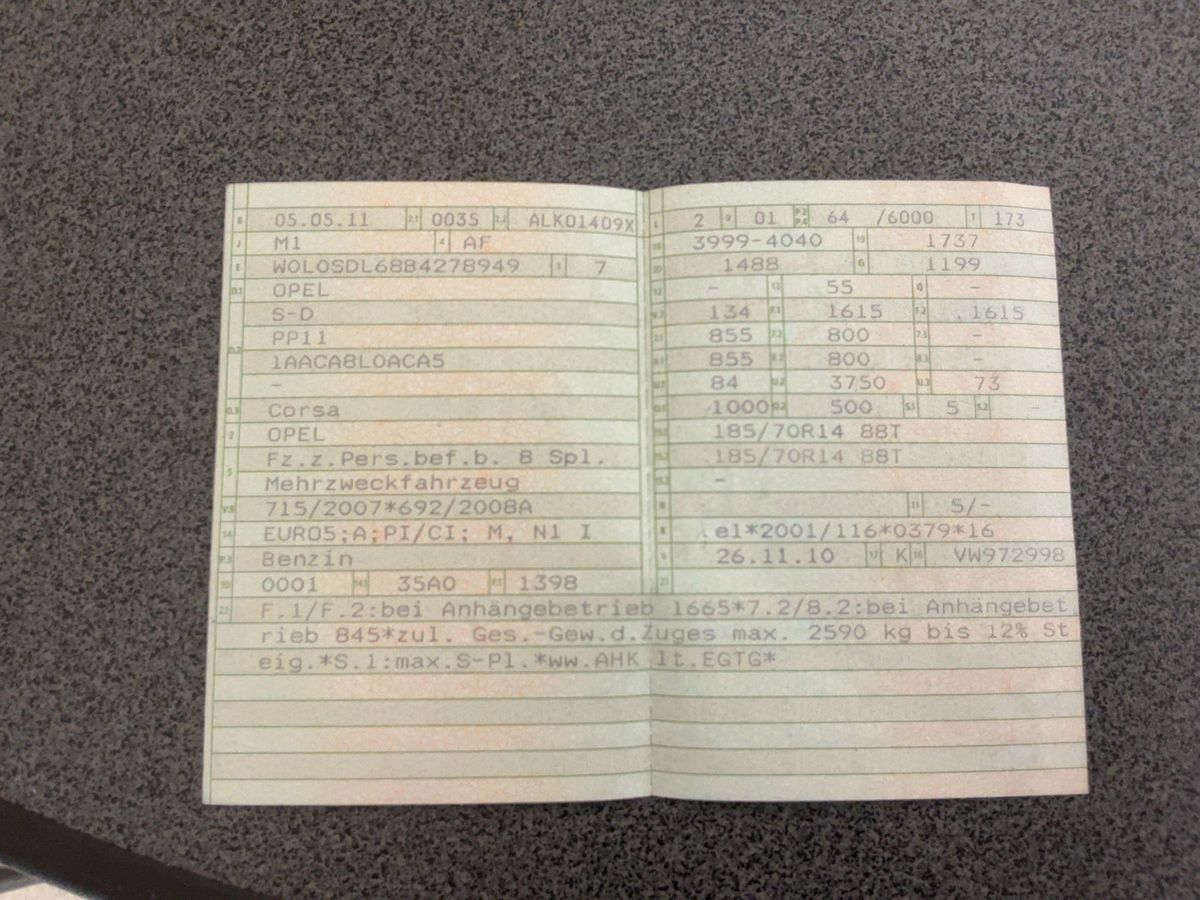 B 05.05.11 2.1 0035 2.2 ALK01409X
J M1 4 AF
E W0L0SDL68B4278949 3 7
D.1 OPEL
S-D
D.2 PP11
1AACA8L0ACA5
-
D.3 Corsa
2 OPEL
5 Fz.z.Pers.bef.b. 8 Spl.
Mehrzweckfahrzeug
V.9 715/2007*692/2008A
14 EURO5;A;PI/CI; M, N1 I
P.3 Benzin
10 0001 14.1 35A0 P.1 1398
L 2 9 01 P.2 P.4 64 /6000 T 173
18 3999-4040 19 1737
20 1488 G 1199
12 - 13 55 Q -
V.7 134 F.1 1615 F.2 1615
7.1 855 7.2 800 7.3 -
8.1 855 8.2 800 8.3 -
U.1 84 U.2 3750 U.3 73
O.1 1000 O.2 500 S.1 5 S.2 -
15.1 185/70R14 88T
15.2 185/70R14 88T
15.3 -
R 11 5/-
K e1*2001/116*0379*16
6 26.11.10 17 K 16 VW972998
21
22 F.1/F.2:bei Anhängebetrieb 1665*7.2/8.2:bei Anhängebet
rieb 845*zul. Ges.-Gew.d.Zuges max. 2590 kg bis 12% St
eig.*S.1:max.S-Pl.*ww.AHK lt.EGTG*